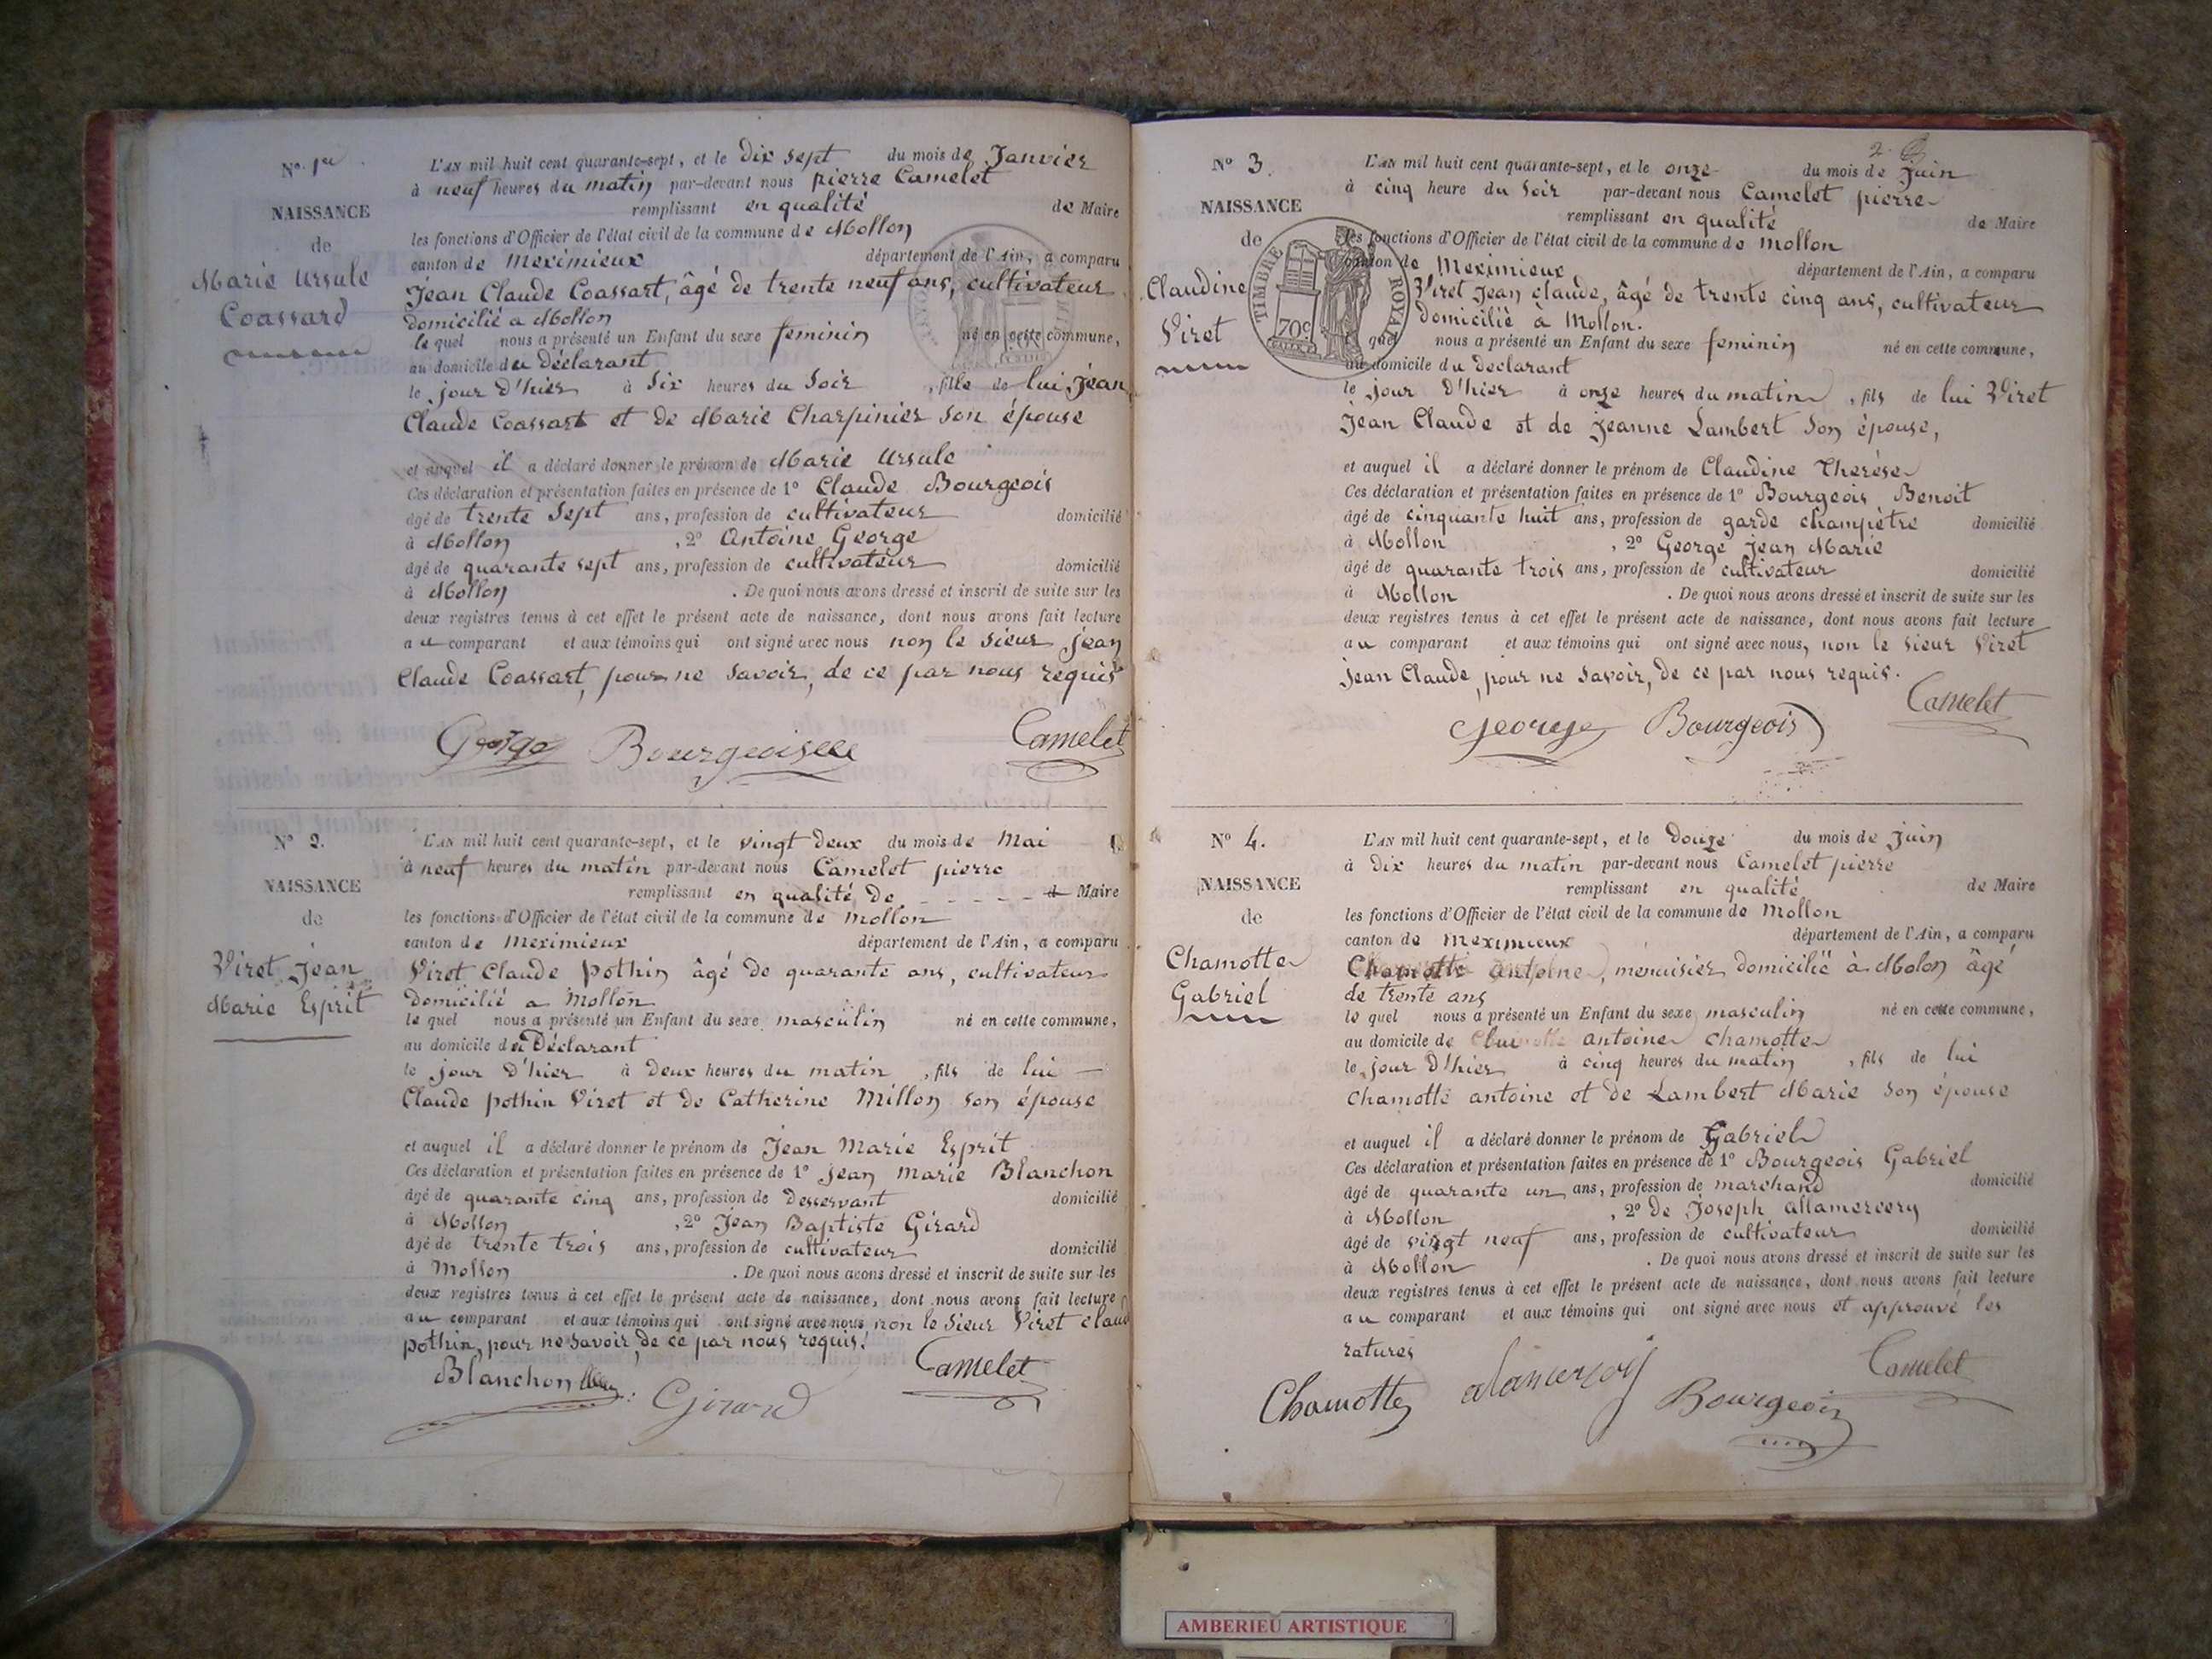 N° 1er
NAISSANCE
de
Marie Ursule
Coassard
L'AN mil huit cent quarante-sept, et le dix sept du mois de Janvier
à neuf heures du matin par-devant nous pierre Camelet
remplissant en qualité de Maire
les fonctions d'Officier de l'état civil de la commune de Mollon
canton de Meximieux département de l'Ain, a comparu
Jean Claude Coassart, âgé de trente neuf ans, cultivateur
domicilié a Mollon
le quel nous a présenté un Enfant du sexe feminin né en cette commune,
au domicile du Déclarant
le jour d'hier à Six heures du Soir, fille de lui Jean
Claude Coassart et de Marie Charpinier son épouse
et auquel il a déclaré donner le prénom de Marie Ursule
Ces déclaration et présentation faites en présence de 1° Claude Bourgeois
âgé de trente Sept ans, profession de cultivateur domicilié
à Mollon, 2° Antoine George
âgé de quarante sept ans, profession de cultivateur domicilié
à Mollon. De quoi nous avons dressé et inscrit de suite sur les
deux registres tenus à cet effet le présent acte de naissance, dont nous avons fait lecture
au comparant et aux témoins qui ont signé avec nous non le Sieur Jean
Claude Coassart, pour ne Savoir, de ce par nous requis
George Bourgeois Camelet
N° 2.
NAISSANCE
de
Viret Jean
Marie Esprit
L'AN mil huit cent quarante-sept, et le vingt deux du mois de Mai
à neuf heures du matin par-devant nous Camelet pierre
remplissant en qualité de - - - - - d Maire
les fonctions d'Officier de l'état civil de la commune de Mollon
canton de Meximieux département de l'Ain, a comparu
Viret Claude Pothin âgé de quarante ans, cultivateur
Domicilié a Mollon
le quel nous a présenté un Enfant du sexe masculin né en cette commune,
au domicile du Déclarant
le jour d'hier à Deux heures du matin, fils de lui —
Claude pothin Viret et de Catherine Millon son épouse
et auquel il a déclaré donner le prénom de Jean Marie Esprit
Ces déclaration et présentation faites en présence de 1° Jean Marie Blanchon
âgé de quarante cinq ans, profession de Desservant domicilié
à Mollon, 2° Jean Baptiste Girard
âgé de trente trois ans, profession de cultivateur domicilié
à Mollon. De quoi nous avons dressé et inscrit de suite sur les
deux registres tenus à cet effet le présent acte de naissance, dont nous avons fait lecture
au comparant et aux témoins qui ont signé avec nous non le Sieur Viret claud
pothin, pour ne savoir, de ce par nous requis.
Blanchon Girard Camelet
2.
N° 3.
NAISSANCE
de
Claudine
Viret
TIMBRE ROYAL
70c
L'AN mil huit cent quarante-sept, et le onze du mois de Juin
à cinq heure du Soir par-devant nous Camelet pierre
remplissant en qualité de Maire
les fonctions d'Officier de l'état civil de la commune de mollon
canton de Meximieux département de l'Ain, a comparu
Viret Jean claude, âgé de trente cinq ans, cultivateur
Domicilié à Mollon.
le quel nous a présenté un Enfant du sexe feminin né en cette commune,
au domicile du Declarant
le jour d'hier à onze heures du matin, fils de lui Viret
Jean Claude et de Jeanne Lambert Son épouse,
et auquel il a déclaré donner le prénom de Claudine Therèse
Ces déclaration et présentation faites en présence de 1° Bourgeois Benoit
âgé de cinquante huit ans, profession de garde champêtre domicilié
à Mollon, 2° George jean Marie
âgé de quarante trois ans, profession de cultivateur domicilié
à Mollon. De quoi nous avons dressé et inscrit de suite sur les
deux registres tenus à cet effet le présent acte de naissance, dont nous avons fait lecture
au comparant et aux témoins qui ont signé avec nous, non le Sieur Viret
Jean Claude, pour ne Savoir, de ce par nous requis.
George Bourgeois Camelet
N° 4.
NAISSANCE
de
Chamotte
Gabriel
L'AN mil huit cent quarante-sept, et le Douze du mois de Juin
à Dix heures du matin par-devant nous Camelet pierre
remplissant en qualité de Maire
les fonctions d'Officier de l'état civil de la commune de Mollon
canton de Meximieux département de l'Ain, a comparu
Chamotte antoine, menuisier domicilié à Molon âgé
de trente ans
le quel nous a présenté un Enfant du sexe masculin né en cette commune,
au domicile de antoine chamotte
le jour d'hier à cinq heures du matin, fils de lui
chamotte antoine et de Lambert Marie son épouse
et auquel il a déclaré donner le prénom de Gabriel
Ces déclaration et présentation faites en présence de 1° Bourgeois Gabriel
âgé de quarante un ans, profession de marchand domicilié
à Mollon, 2° de Joseph allamercery
âgé de vingt neuf ans, profession de cultivateur domicilié
à Mollon. De quoi nous avons dressé et inscrit de suite sur les
deux registres tenus à cet effet le présent acte de naissance, dont nous avons fait lecture
au comparant et aux témoins qui ont signé avec nous et approuvé les
ratures
Chamotte Bourgeois Camelet
AMBERIEU ARTISTIQUE